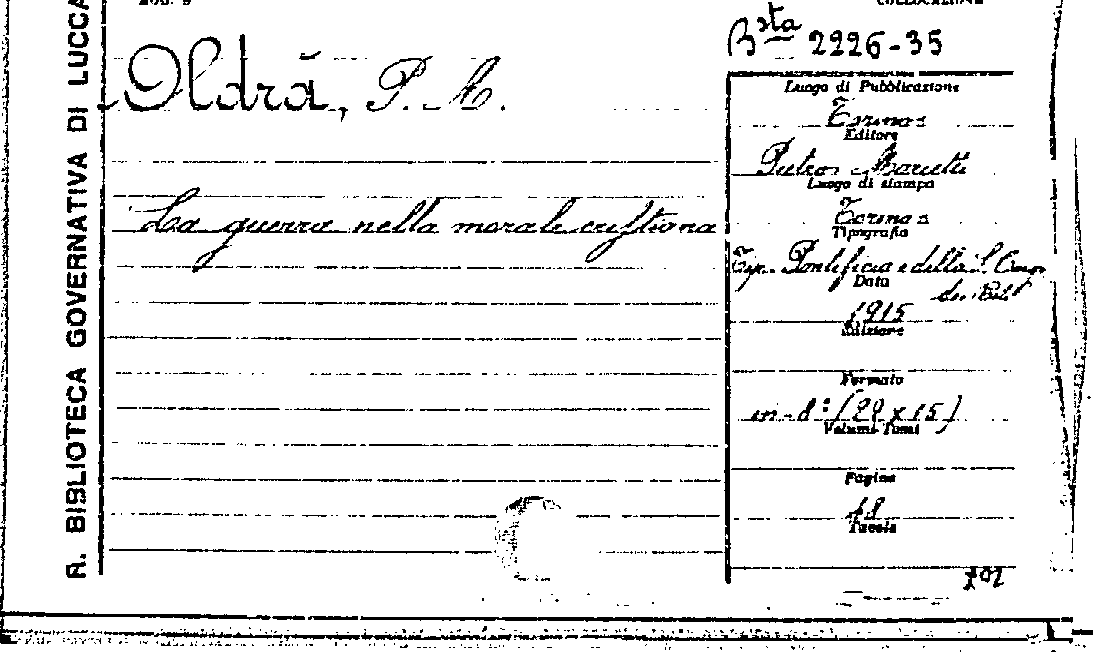 R. BIBLIOTECA GOVERNATIVA DI LUCCA
COLLOCAZIONE
Bsta 2226-35
Oldrà, P. A.
La guerra nella morale cristiana
Luogo di Pubblicazione
Torino
Editore
Pietro Marietti
Luogo di stampa
Torino
Tipografia
Tip. Pontificia e della S. Congr.
dei Riti
Data
1915
Edizione
Formato
in-8° (20 x 15)
Volumi-Tomi
Pagine
48
Tavole